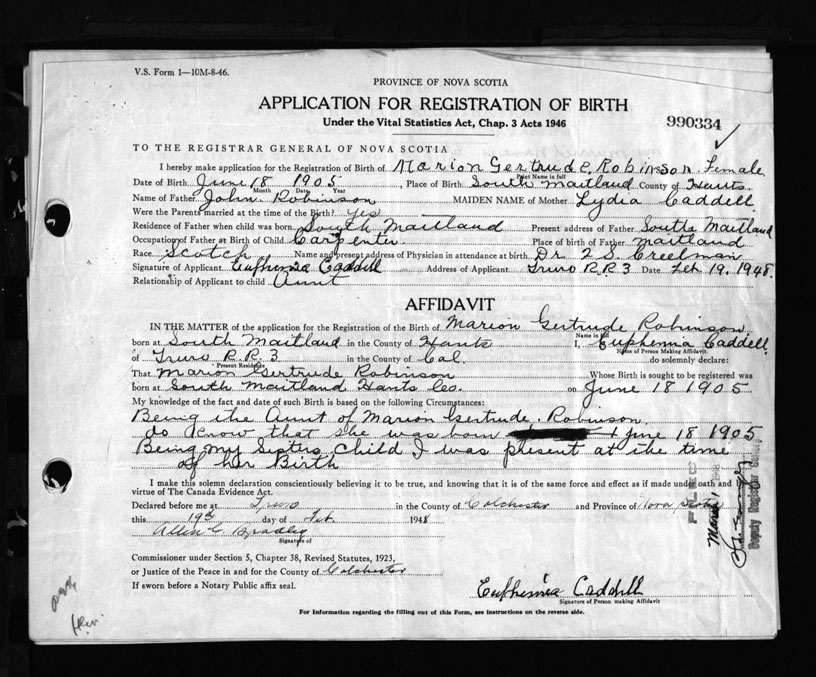 V.S. Form 1—10M-8-46.
PROVINCE OF NOVA SCOTIA
APPLICATION FOR REGISTRATION OF BIRTH
Under the Vital Statistics Act, Chap. 3 Acts 1946
990334
TO THE REGISTRAR GENERAL OF NOVA SCOTIA
I hereby make application for the Registration of Birth of Marion Gertrude Robinson. Female
Print Name in full
Date of Birth June 18 1905, Place of Birth South Maitland County of Hants
Month Date Year
Name of Father John Robinson MAIDEN NAME of Mother Lydia Caddell
Were the Parents married at the time of the Birth? Yes
Residence of Father when child was born South Maitland Present address of Father South Maitland
Occupation of Father at Birth of Child Carpenter Place of birth of Father Maitland
Race Scotch Name and present address of Physician in attendance at birth Dr F S Creelman
Signature of Applicant Euphemia Caddell Address of Applicant Truro R.R.3 Date Feb 19, 1948.
Relationship of Applicant to child Aunt
AFFIDAVIT
IN THE MATTER of the application for the Registration of the Birth of Marion Gertrude Robinson
Name in full
born at South Maitland in the County of Hants I, Euphemia Caddell
Name of Person Making Affidavit
of Truro R.R.3 in the County of Col. do solemnly declare:
Present Residence
That Marion Gertrude Robinson Whose Birth is sought to be registered was
born at South Maitland Hants Co. on June 18 1905
My knowledge of the fact and date of such Birth is based on the following Circumstances:
Being the Aunt of Marion Gertrude. Robinson.
do know that she was born June 18 1905
Being my Sisters Child I was present at the time
of her Birth
I make this solemn declaration conscientiously believing it to be true, and knowing that it is of the same force and effect as if made under oath and by
virtue of The Canada Evidence Act.
Declared before me at Truro in the County of Colchester and Province of Nova Scotia
this 19th day of Feb. 1948
Allen C Bradley
Signature of
Commissioner under Section 5, Chapter 38, Revised Statutes, 1923,
or Justice of the Peace in and for the County of Colchester
If sworn before a Notary Public affix seal.
Euphemia Caddell
Signature of Person making Affidavit
For Information regarding the filling out of this Form, see instructions on the reverse side.
FILED
March 1 1948
Deputy Registrar General